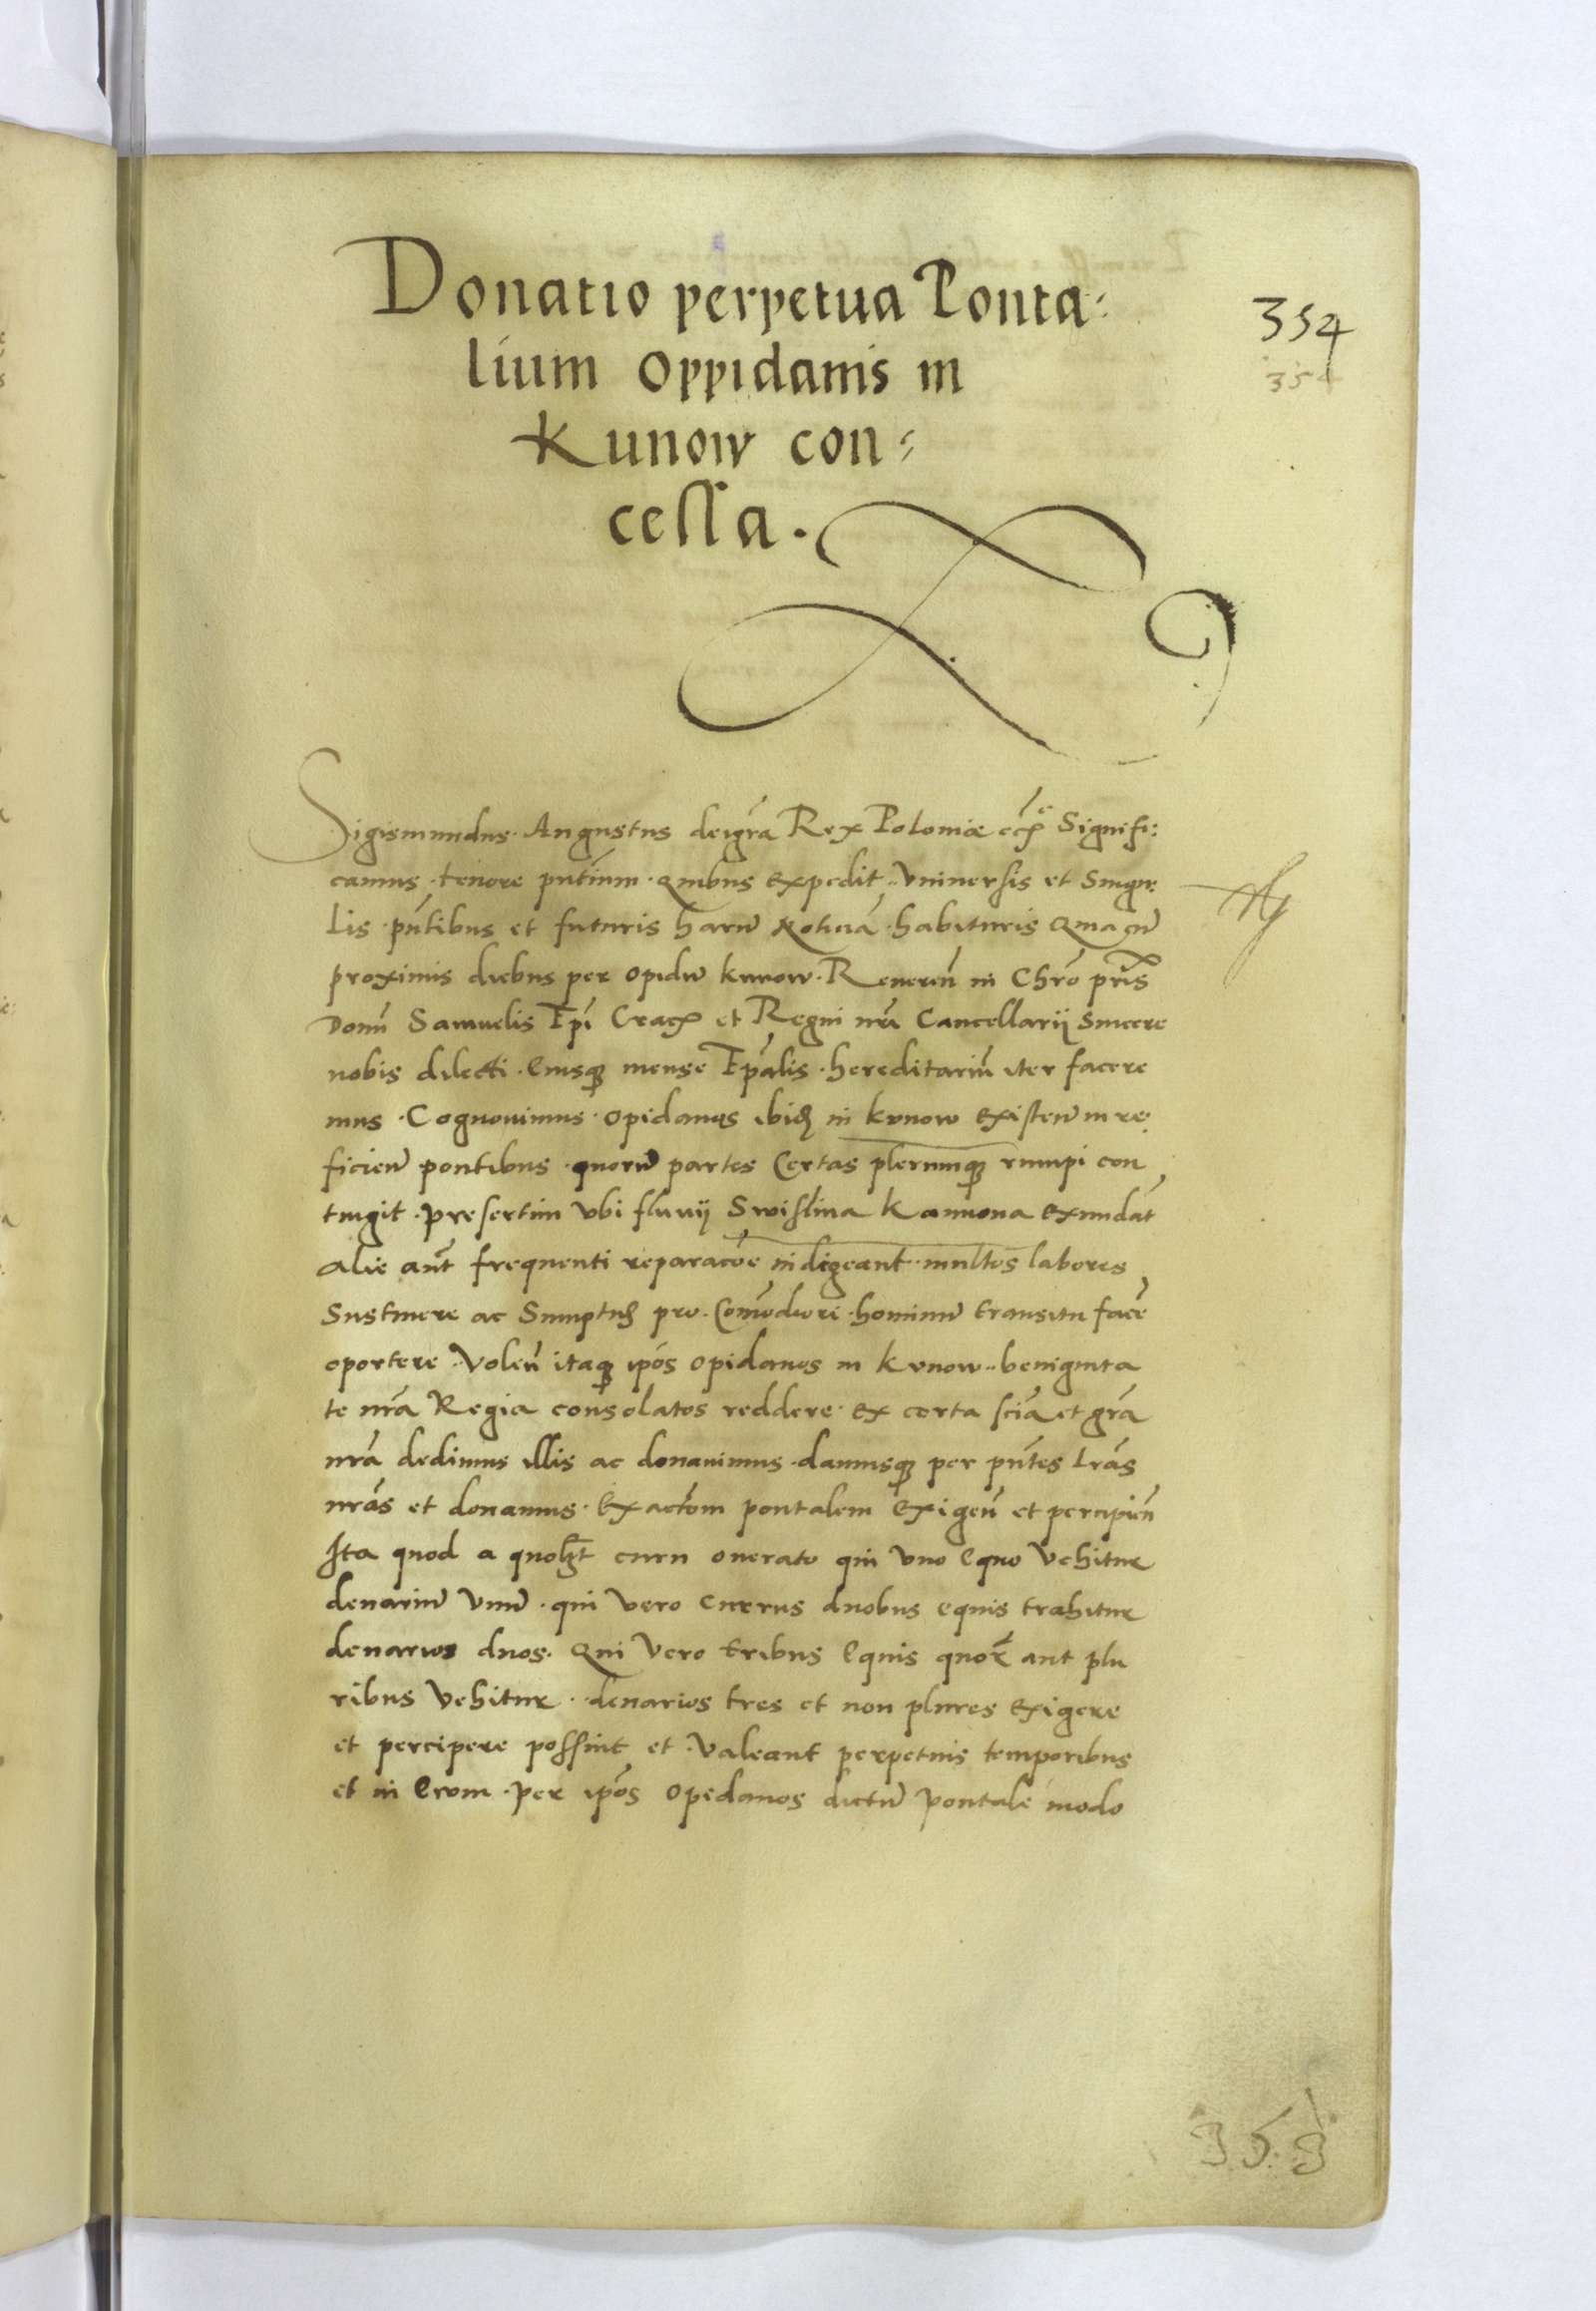 Donatio perpetua Ponta⸗
lium oppidanis in
Kunow con⸗
cessa.
354
354
Sigismundus Augustus dei gr̃a Rex Poloniæ etc̃ Signifi:
camus tenore pñtium quibus expedit vniuersis et Singu:
lis pñtibus et futuris harũ Noticiã habituris Qma cũ
proximis diebus per opidũ kunow Reuereñ in Chrõ pr̃is
Domĩ Samuelis Ep̃i Cracȝ et Regni nr̃i Cancellarij Sincere
nobis dilecti Eiusqȝ mense Ep̃alis hereditariũ iter facere
mus Cognouimus opidanos ibiđ in kvnow existeñ in re:
ficieñ pontibus quorũ partes Certas plerumqȝ rumpi con
tingit presertim vbi fluuij Swislina Kamiona exundãt
alie aũt frequenti reparacõe indigeant multos labores
Sustinere ac Sumptuȝ pro Com̃odiore hominũ transitu facẽ
oportere Voleñ itaqȝ ip̃os opidanos in kvnow benignita
te nr̃a Regia consolatos reddere ex certa sciã et gr̃a
nr̃a dedimus illis ac donauimus damusqȝ per pñtes lr̃as
nr̃as et donamus Exactõm pontalem Exigeñ et percipieñ
Ita quod a quolȝt curu onerato qui vno Equo Vehitur
denariũ vnũ qui vero currus duobus equis trahitur
denarios duos. Qui Vero tribus Equis quor̃ aut plu
ribus Vehitur denarios tres et non plures exigere
et percipere possint et Valeant perpetuis temporibus
et in Evum per ip̃os opidanos dictũ pontale modo
353